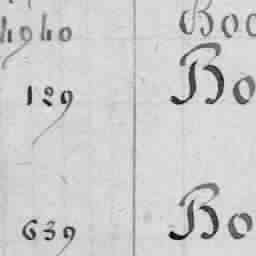 4040 Boo
129 Bo
639 Bo